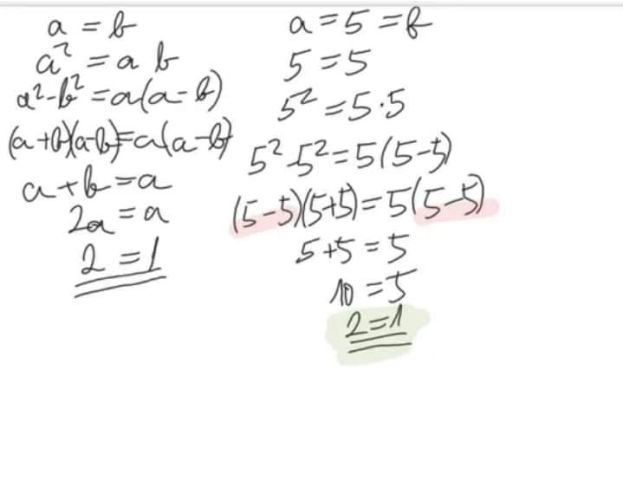 a = b
a² = a b
a²-b² = a(a-b)
(a+b)(a-b)=a(a-b)
a+b=a
2a = a
2 = 1
a=5=b
5 = 5
5² = 5·5
5²-5²=5(5-5)
(5-5)(5+5)=5(5-5)
5+5=5
10 = 5
2=1